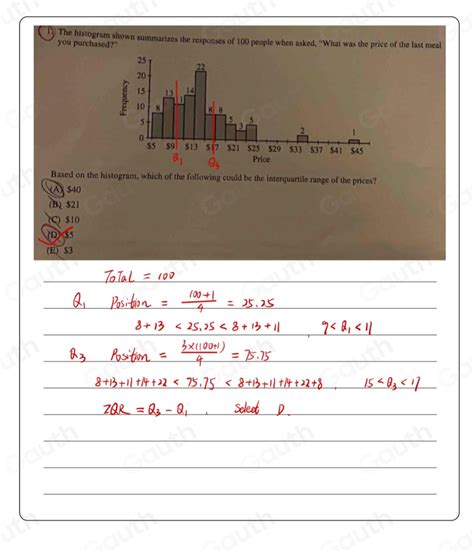 1. The histogram shown summarizes the responses of 100 people when asked, "What was the price of the last meal
you purchased?"
25
20
15
10
5
0
Frequency
8 13 11 14 22 8 8 5 3 5 2 1
$5 $9 $13 $17 $21 $25 $29 $33 $37 $41 $45
Q1 Q3
Price
Based on the histogram, which of the following could be the interquartile range of the prices?
(A) $40
(B) $21
(C) $10
(D) $5
(E) $3
Total = 100
Q1 Position = 100+1 / 4 = 25.25
8+13 < 25.25 < 8+13+11 9<Q1<11
Q3 Position = 3×(100+1) / 4 = 75.75
8+13+11+14+22 < 75.75 < 8+13+11+14+22+8. 15<Q3<17
IQR = Q3 - Q1. Select D.
Gauth